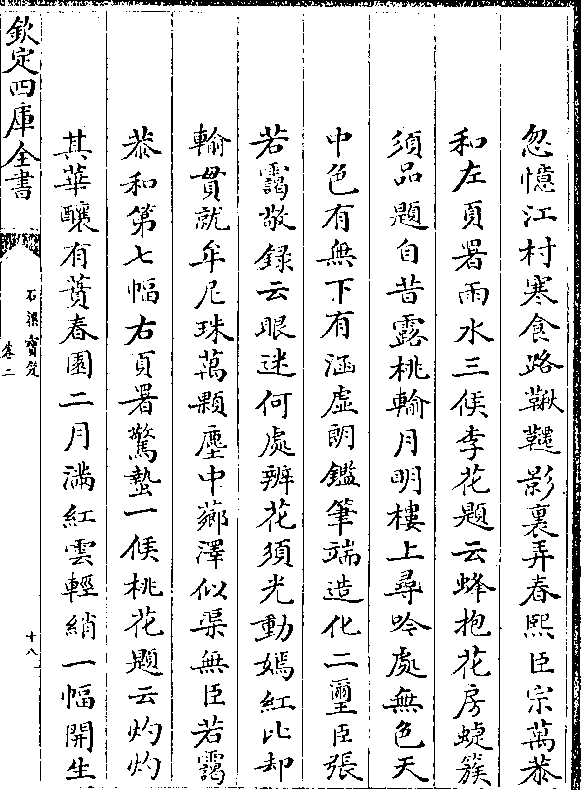 忽憶江村寒食路鞦韆影裏弄春熙臣宗萬恭
和左頁署雨水三候李花題云蜂抱花房蜨簇
須品題自昔露桃輸月明樓上尋吟處無色天
中色有無下有涵虛朗鑑筆端造化二璽臣張
若靄敬録云眼迷何處辨花須光動嫣紅比却
輸貫就牟尼珠萬顆塵中薌澤似渠無臣若靄
恭和第七幅右頁署驚蟄一候桃花題云灼灼
其華醲有蕡春園二月滿紅雲輕綃一幅開生
欽定四庫全書
石渠寶笈
卷二
十八